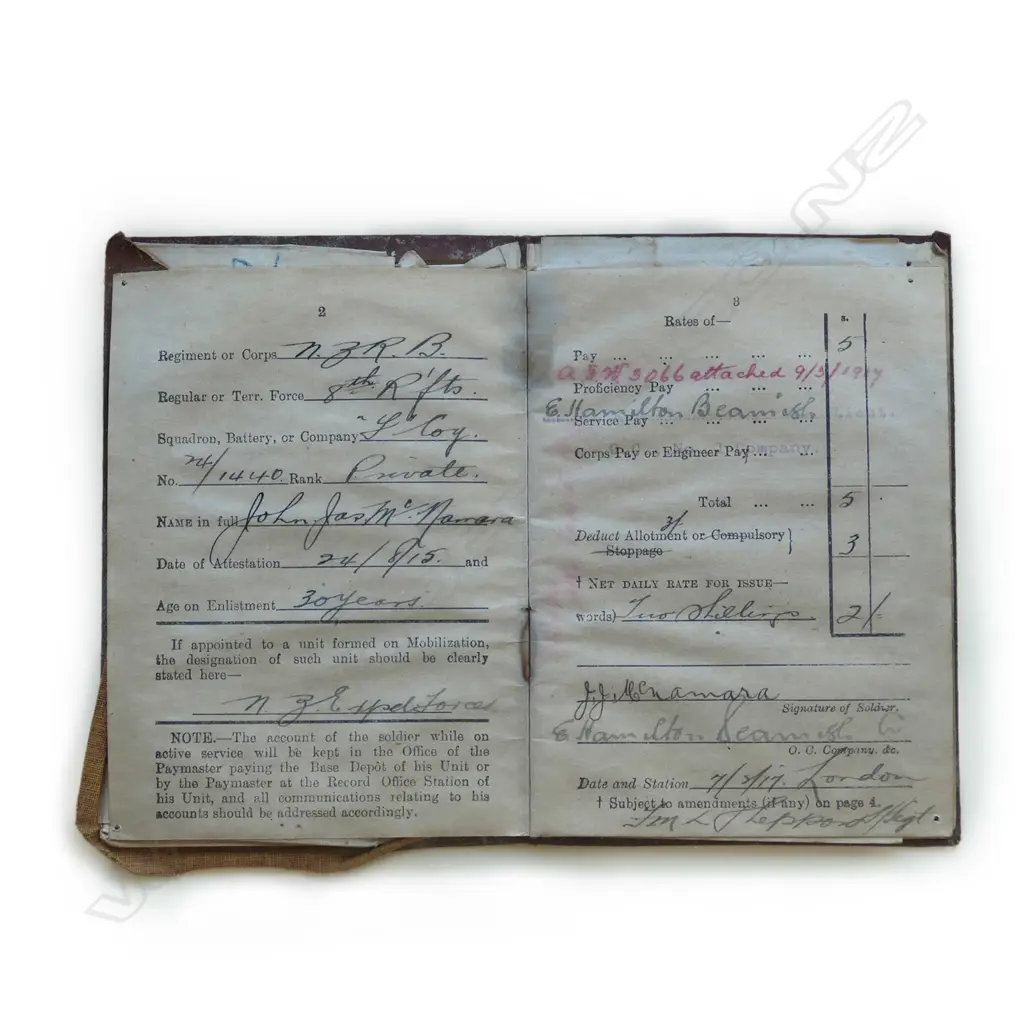 2
Regiment or Corps N. Z. R. B.
Regular or Terr. Force 8th R'fts.
Squadron, Battery, or Company Coy.
No. 24/1440. Rank Private.
NAME in full John Jas Mc Namara
Date of Attestation 24/8/15. and
Age on Enlistment 30 years.
If appointed to a unit formed on Mobilization,
the designation of such unit should be clearly
stated here—
N. Z. Exped Forces
NOTE.—The account of the soldier while on
active service will be kept in the Office of the
Paymaster paying the Base Depôt of his Unit or
by the Paymaster at the Record Office Station of
his Unit, and all communications relating to his
accounts should be addressed accordingly.
3
Rates of— s.
Pay ... ... ... ... ... 5
3066 attached 9/5/1917
Proficiency Pay ... ... ...
E. Hamilton Beamish Lieut.
Service Pay ... ... ... ...
Company.
Corps Pay or Engineer Pay ... ...
Total ... ... 5
3/
Deduct Allotment or Compulsory } 3
Stoppage
† NET DAILY RATE FOR ISSUE—
words) Two Shillings. 2/-
J. J. McNamara
Signature of Soldier.
E Hamilton Beamish
O. C. Company, &c.
Date and Station 7/5/17. London
† Subject to amendments (if any) on page 4.
Sheppard
NZ